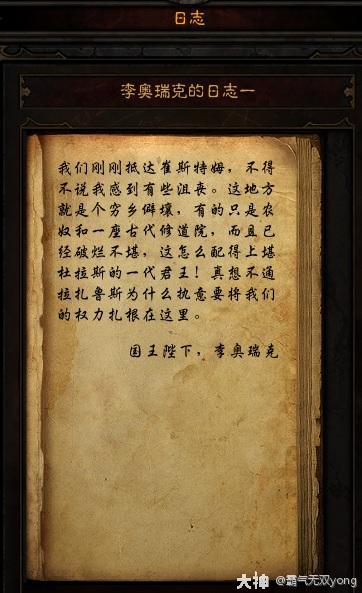 日志
李奥瑞克的日志一
我们刚刚抵达崔斯特姆，不得
不说我感到有些沮丧。这地方
就是个穷乡僻壤，有的只是农
奴和一座古代修道院，而且已
经破烂不堪，这怎么配得上堪
杜拉斯的一代君王！真想不通
拉扎鲁斯为什么执意要将我们
的权力扎根在这里。
国王陛下，李奥瑞克
大神 @霸气无双yong